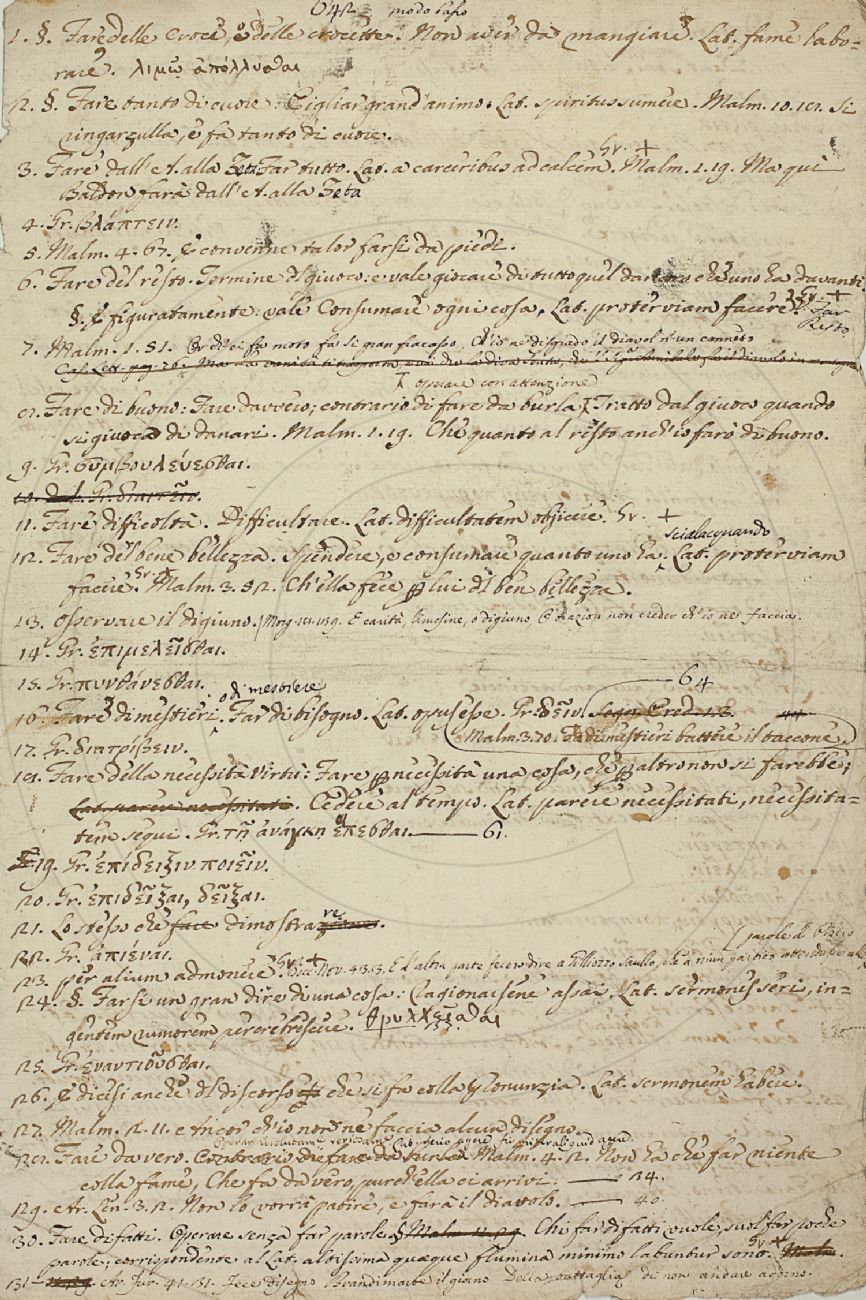 642 modo basso
1. §. Fare delle Croci, o delle crocette. Non aver da mangiare. Lat. fame labo-
rare. λιμῷ ἀπόλλυσθαι
2. §. Fare tanto di cuore. Pigliar grand'animo. Lat. spiritus sumere. Malm. 10. Si
ringarzulla, e fa tanto di cuore.
3. Fare dall'A. alla Zeta. Far tutto. Lat. a carceribus ad calcem. Gr. + Malm. 1. 19. Ma qui
Baldon farà dall'A. alla Zeta
4. Gr. βλάπτειν.
5. Malm. 4. 67. E convenne talor farsi da piedi.
6. Fare del resto. Termine di giuoco: e vale giocare di tutto quel danaro che uno ha davanti.
§. E figuratamente: vale Consumare ogni cosa. Lat. proterviam facere. Gr. + Far Resto
7. Malm. 1. 51. fa moto fa si gran fracasso, Ch'io ne disgrado il diavol n'un canneto
Ma la vanità ti trasporta
operare con attenzione
8. Fare di buono: Fare davvero; contrario di fare da burla. Tratto dal giuoco quando
si giuoca di danari. Malm. 1. 19. Che quanto al resto anch'io farò di buono.
9. Gr. συμβουλεύεσθαι.
10. Gr.
11. Fare difficoltà. Difficultare. Lat. difficultatem objicere. Gr. +
scialacquando
12. Fare del bene bellezza. Spendere, e consumare quanto uno ha. Lat. proterviam
facere. Gr. + Malm. 3. 52. Ch'ella fece p lui del ben bellezza.
13. Osservare il digiuno. Morg. E carità, limosine, o digiuno, Od orazion non creder ch'io ne faccia.
14. Gr. ἐπιμελεῖσθαι.
15. Gr. πυνθάνεσθαι. 64
o di mestiere
16. Fare di mestieri. Far di bisogno. Lat. opus esse. Gr. δεῖν. Segn. Pred. 1. 2. 44
Malm. 3. 70. Fa di mestieri battere il taccone.
17. Gr. διατρίβειν.
18. Fare della necessità virtù: Fare p necessità una cosa, che p altro non si farebbe;
Lat. parere necessitati. Cedere al tempo. Lat. parere necessitati, necessita-
tem sequi. Gr. τῇ ἀνάγκῃ ἕπεσθαι. 61.
19. Gr. ἐπίδειξιν ποιεῖν.
20. Gr. ἐπιδεῖξαι, δεῖξαι.
21. Lo stesso che fare dimostrazione. re
22. Gr. ἀπιέναι. parole di
23. per alium admonere. Gr. + Bocc. Nov. 43.13. E d'altra parte fecero dire a Gigliozzo Saullo, che a niun partito attendesse
24. §. Farsi un gran dire di una cosa: Ragionarsene assai. Lat. sermones seri, in-
gentem rumorem percrebrescere. θρυλλεῖσθαι
25. Gr. ἐναντιοῦσθαι.
26. E dicesi anche del discorso che si fa colla pronunzia. Lat. sermonem habere.
27. Malm. 2. 11. Ancor ch'io non ne faccia alcun disegno.
Operare risolutam. Lat. serio agere
28. Fare da vero. Contrario di fare da burla. Malm. 4. 2. Non ha che far niente
colla fame, Che fa da vero, purch'ella ci arrivi. 34.
29. Ar. Len. 3. 2. Non lo vorrà patire, e farà il diavolo. 40
30. Fare di fatti. Operare senza far parole. § Malm. 11. 29. Chi far di fatti vuole, suol far poche
parole; corrispondente al Lat. altissima quaeque flumina minimo labuntur sono. Gr. + Malm.
31. Ar. Fur. 41. 31. Fece disegno Brandimarte il giorno Della battaglia di non andare adorno.